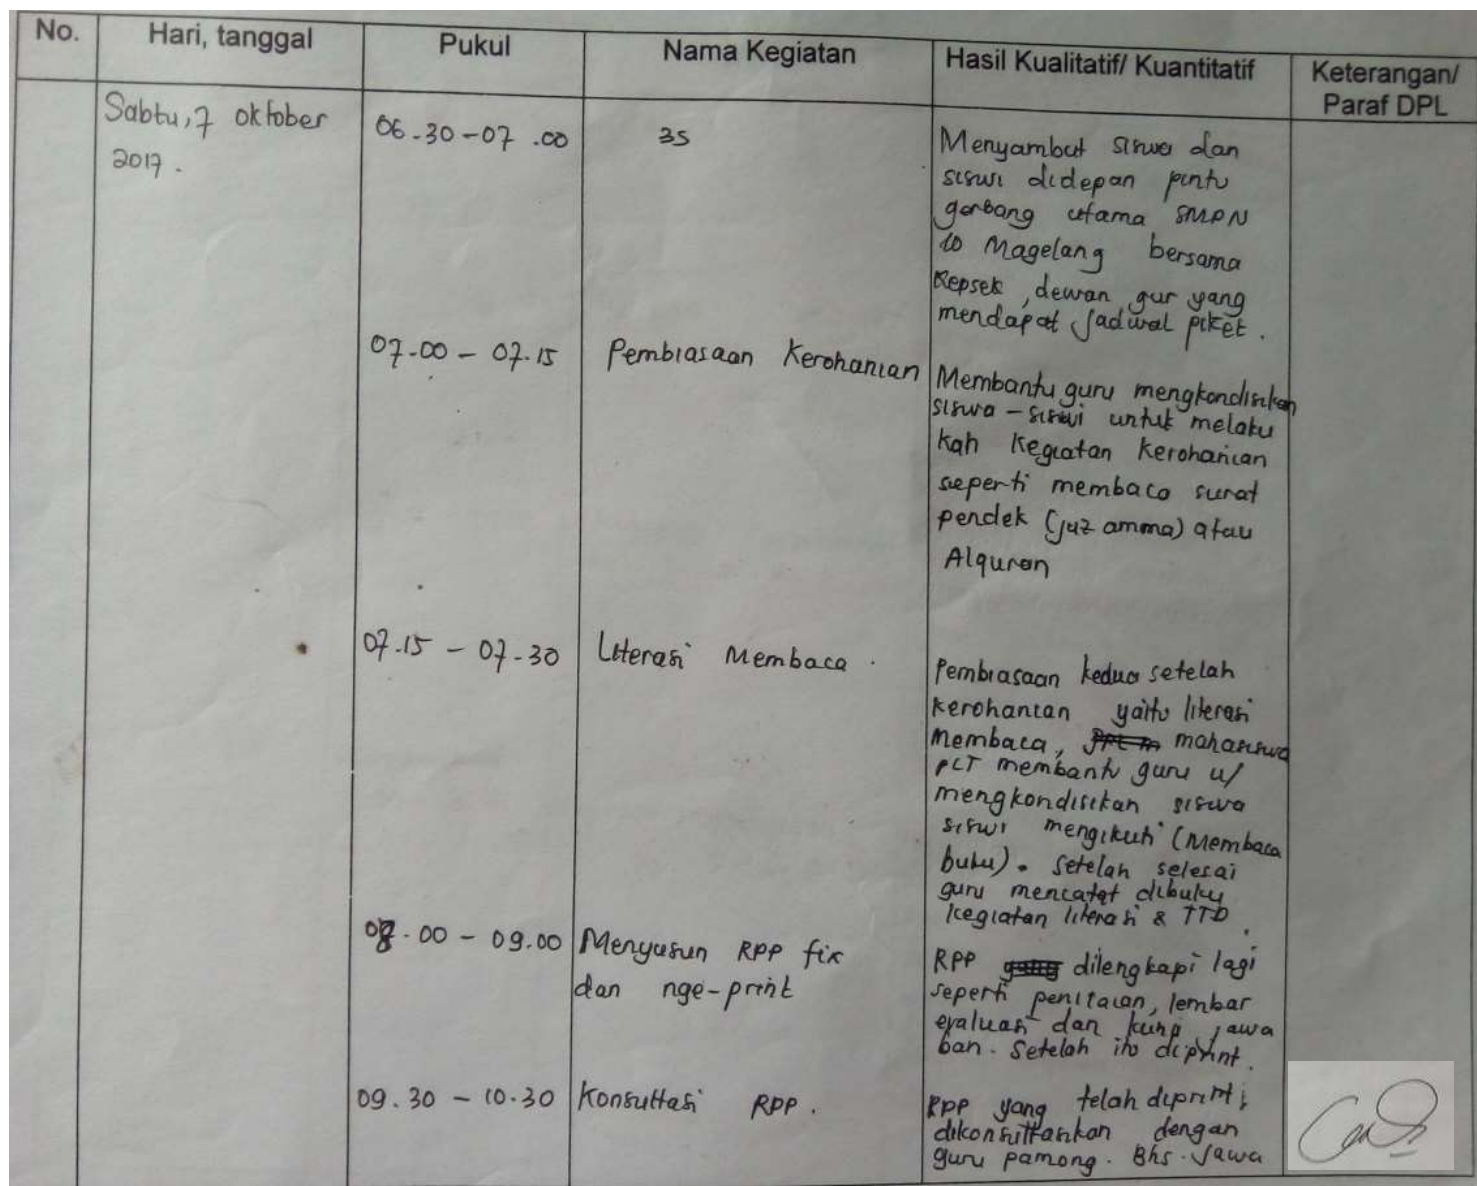 No.
Hari, tanggal
Pukul
Nama Kegiatan
Hasil Kualitatif/ Kuantitatif
Keterangan/
Paraf DPL
Sabtu, 7 oktober
2017.
06.30-07.00
3S
Menyambut siswa dan
siswi didepan pintu
gerbang utama SMPN
10 Magelang bersama
Kepsek, dewan gur yang
mendapat jadwal piket.
07.00 - 07.15
Pembiasaan Kerohanian
Membantu guru mengkondisikan
siswa - siswi untuk melaku
kan kegiatan kerohanian
seperti membaca surat
pendek (juz amma) atau
Alquran
07.15 - 07.30
Literasi Membaca.
Pembiasaan kedua setelah
kerohanian yaitu literasi
membaca, mahasiswa
PLT membantu guru u/
mengkondisikan siswa
siswi mengikuti (Membaca
buku). Setelah selesai
guru mencatat dibuku
kegiatan literasi & TTD.
08.00 - 09.00
Menyusun RPP fix
dan nge-print
RPP dilengkapi lagi
seperti penilaian, lembar
evaluasi dan kunci jawa
ban. Setelah itu diprint.
09.30 - 10.30
Konsultasi RPP.
RPP yang telah diprint,
dikonsultasikan dengan
guru pamong. Bhs. Jawa